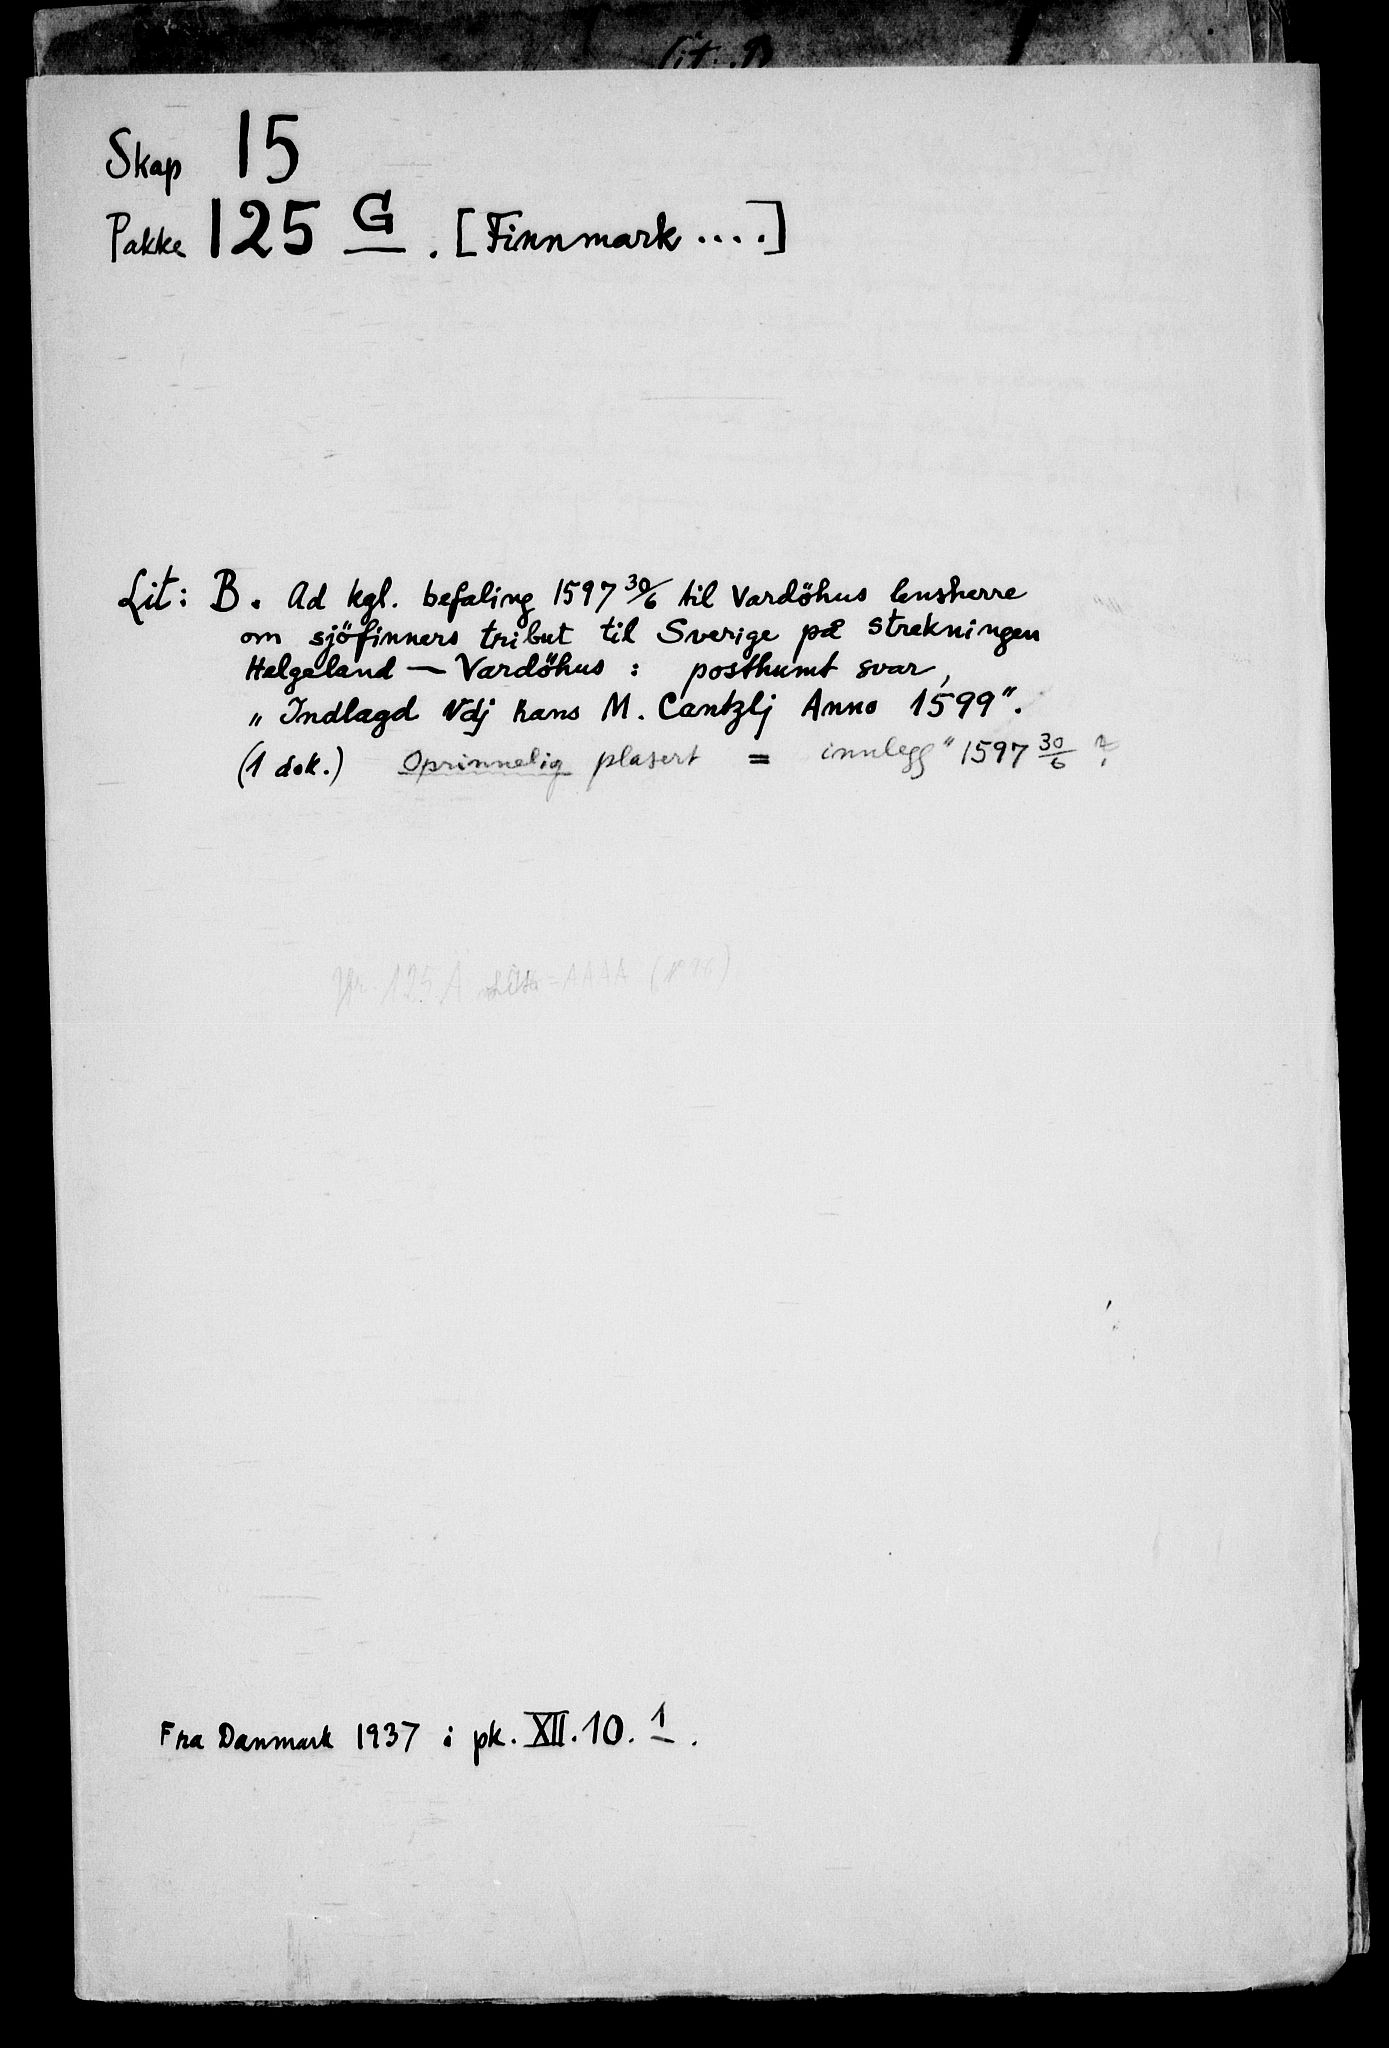 Lit. B
Skap 15
Pakke 125 G. [Finnmark ....]
Lit: B. Ad kgl. befaling 1597 30/6 til Vardöhus lensherre
om sjöfinners tribut til Sverige på strekningen
Helgeland — Vardöhus : posthumt svar,
„ Indlagd Vdj hans M. Cantzlj Anno 1599".
(1 dok.) Oprinnelig plasert = innlegg" 1597 30/6 ?
Jfr. 125 A
Fra Danmark 1937 i pk. XII. 10. 1.